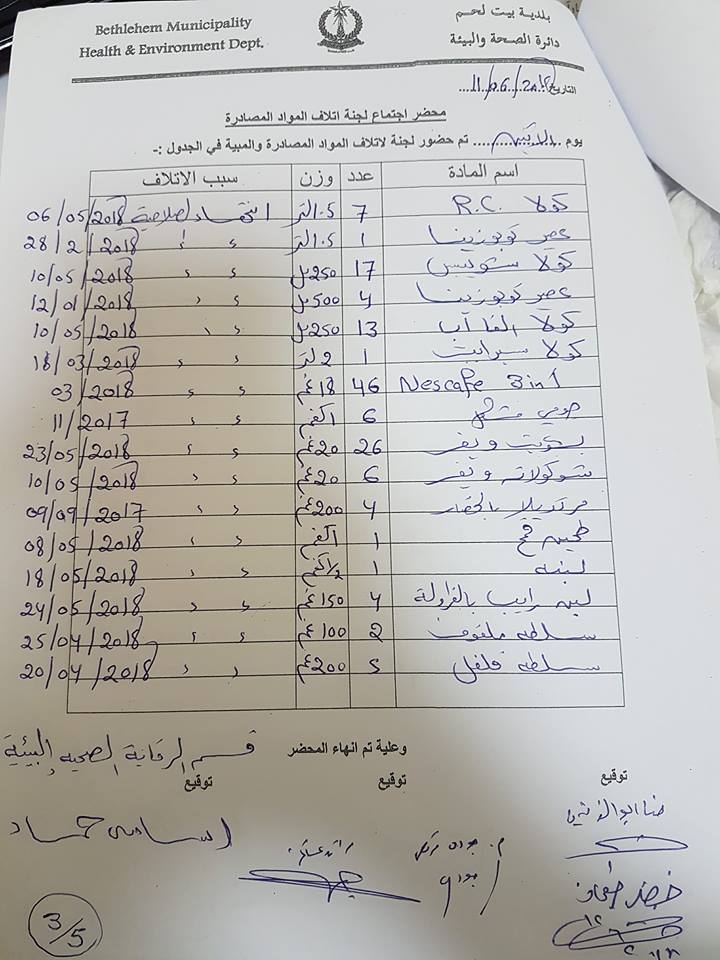 Bethlehem Municipality
Health & Environment Dept.
بلدية بيت لحم
دائرة الصحة والبيئة
التاريخ 11/06/2018
محضر اجتماع لجنة اتلاف المواد المصادرة
يوم الاثنين تم حضور لجنة لاتلاف المواد المصادرة والمبية في الجدول :-
اسم المادة عدد وزن سبب الاتلاف
كولا R.C. 7 1.5 لتر انتهاء الصلاحية 06/05/2018
عصير 1 1.5 لتر ء ء 28/2/2018
كولا 17 250 ء ء 10/05/2018
عصير 4 500 ء ء 12/01/2018
كولا 13 250 ء ء 10/05/2018
كولا سبرايت 1 2 لتر ء ء 18/03/2018
Nescafe 3in1 46 18 غم ء ء 03/2018
6 1 كغم ء ء 11/2017
بسكويت ويفر 26 20 غم ء ء 23/05/2018
شوكولاته ويفر 6 20 غم ء ء 10/05/2018
مرتديلا بالخضار 4 200 غم ء ء 09/09/2017
طحين قمح 1 1 كغم ء ء 08/05/2018
لبنه 1 1/2 كغم ء ء 18/05/2018
لبن رايب بالفراولة 4 150 غم ء ء 24/05/2018
سلطه ملفوف 2 100 غم ء ء 25/04/2018
سلطه فلفل 5 200 غم ء ء 20/04/2018
وعلية تم انهاء المحضر
قسم الرقابة الصحية والبيئية
توقيع توقيع توقيع
3/5